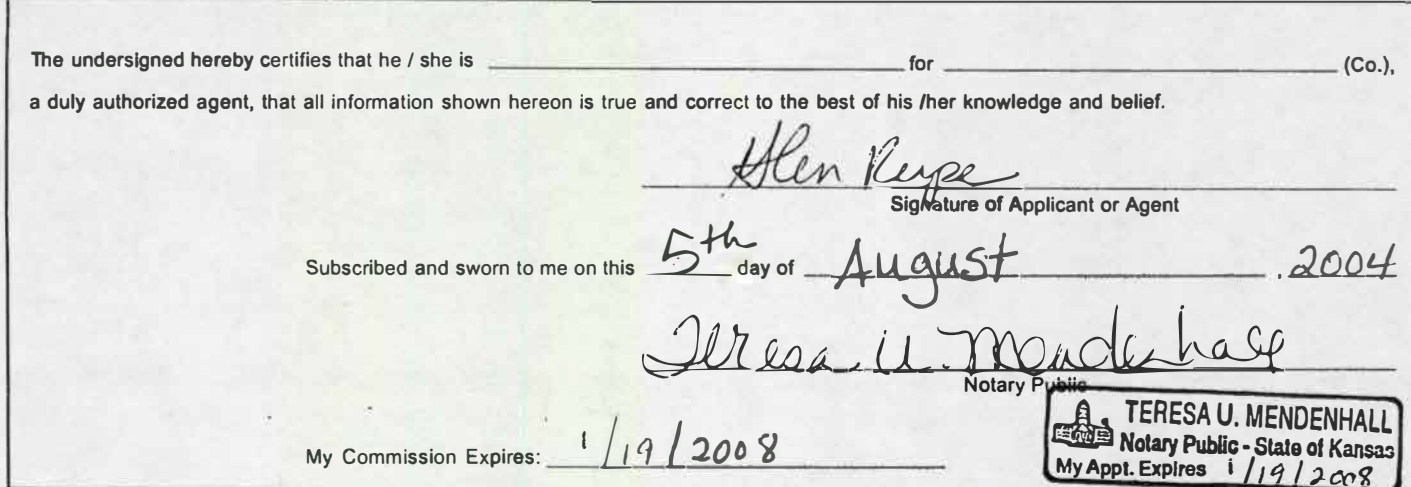 The undersigned hereby certifies that he / she is ______ for ______ (Co.),
a duly authorized agent, that all information shown hereon is true and correct to the best of his /her knowledge and belief.
Glen Rupe
Signature of Applicant or Agent
Subscribed and sworn to me on this 5th day of August , 2004
Teresa U. Mendenhall
Notary Public
TERESA U. MENDENHALL
Notary Public - State of Kansas
My Commission Expires: 1/19/2008
My Appt. Expires 1/19/2008